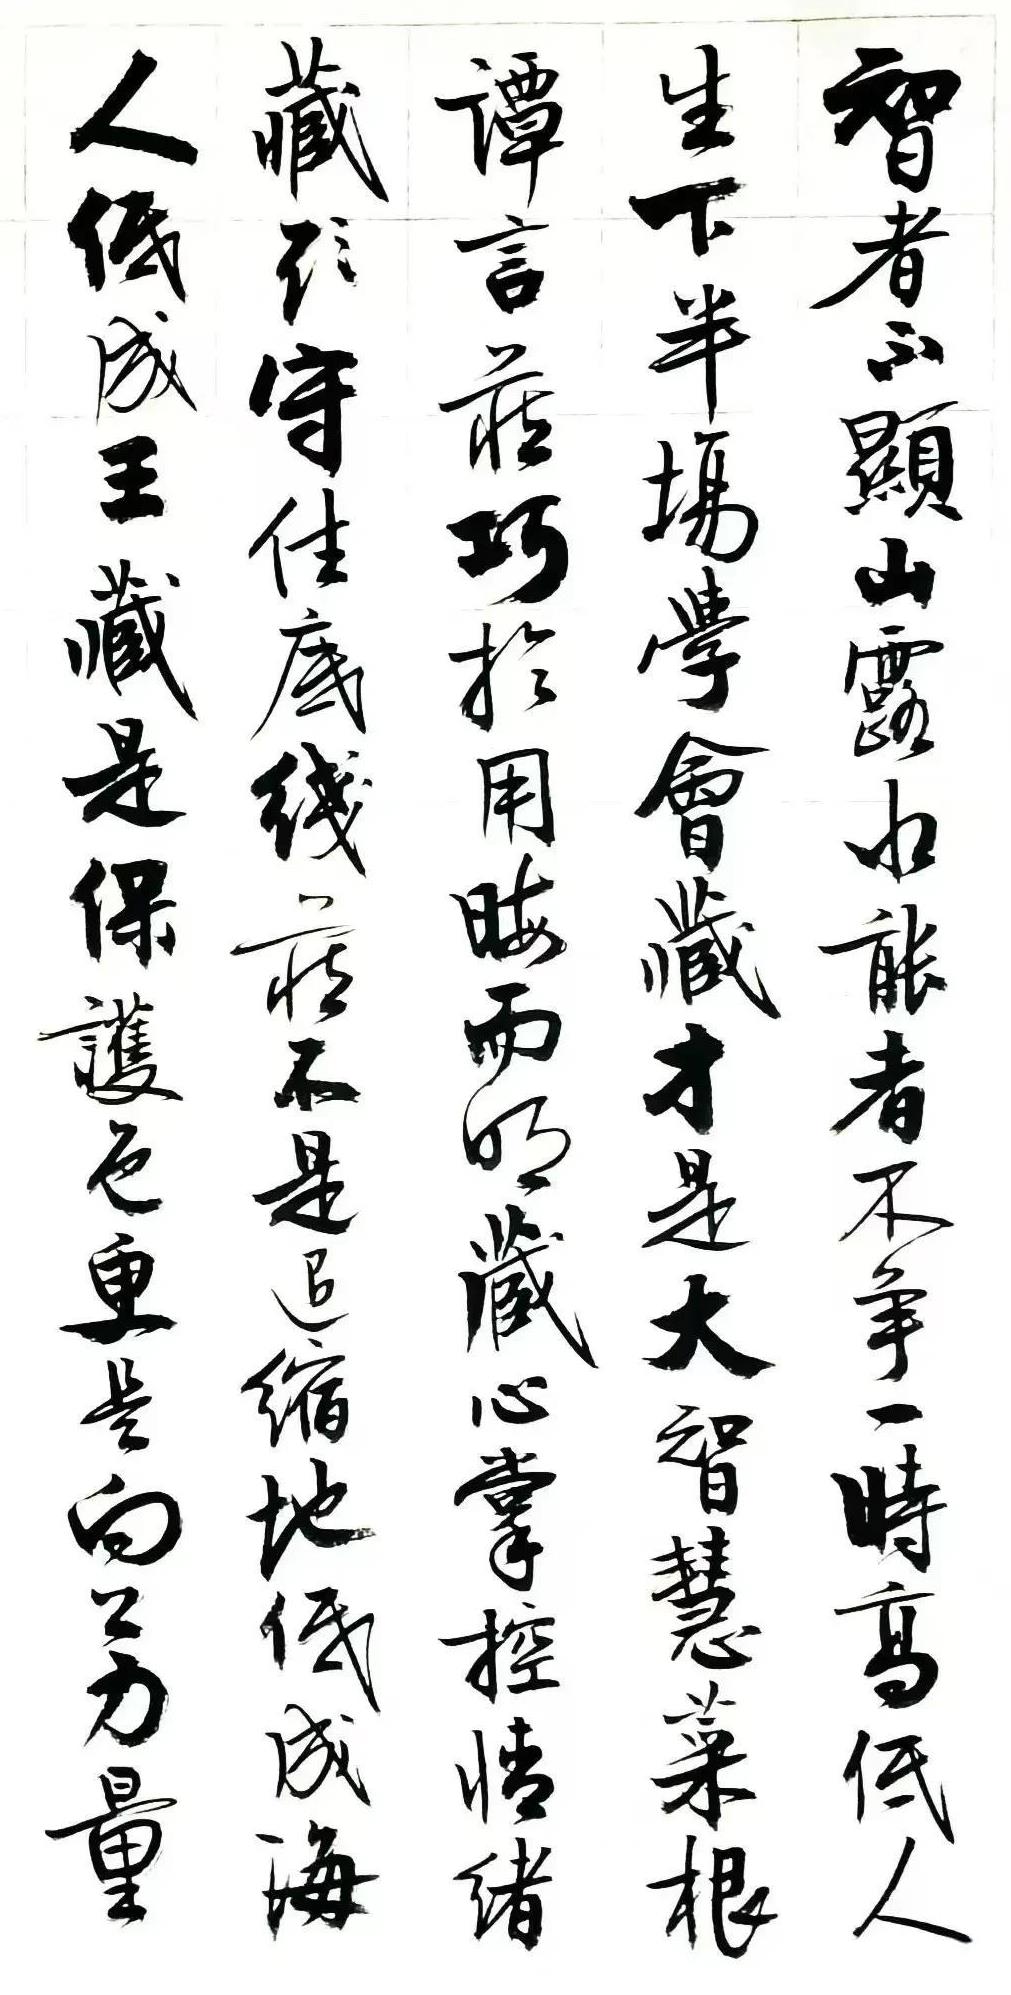 智者不顯山露水能者不争一時高低人
生下半場學會藏才是大智慧菜根
譚言藏巧於用晦而明藏心掌控情緒
藏形守住底线藏不是退縮地低成海
人低成王藏是保護色更是向上力量